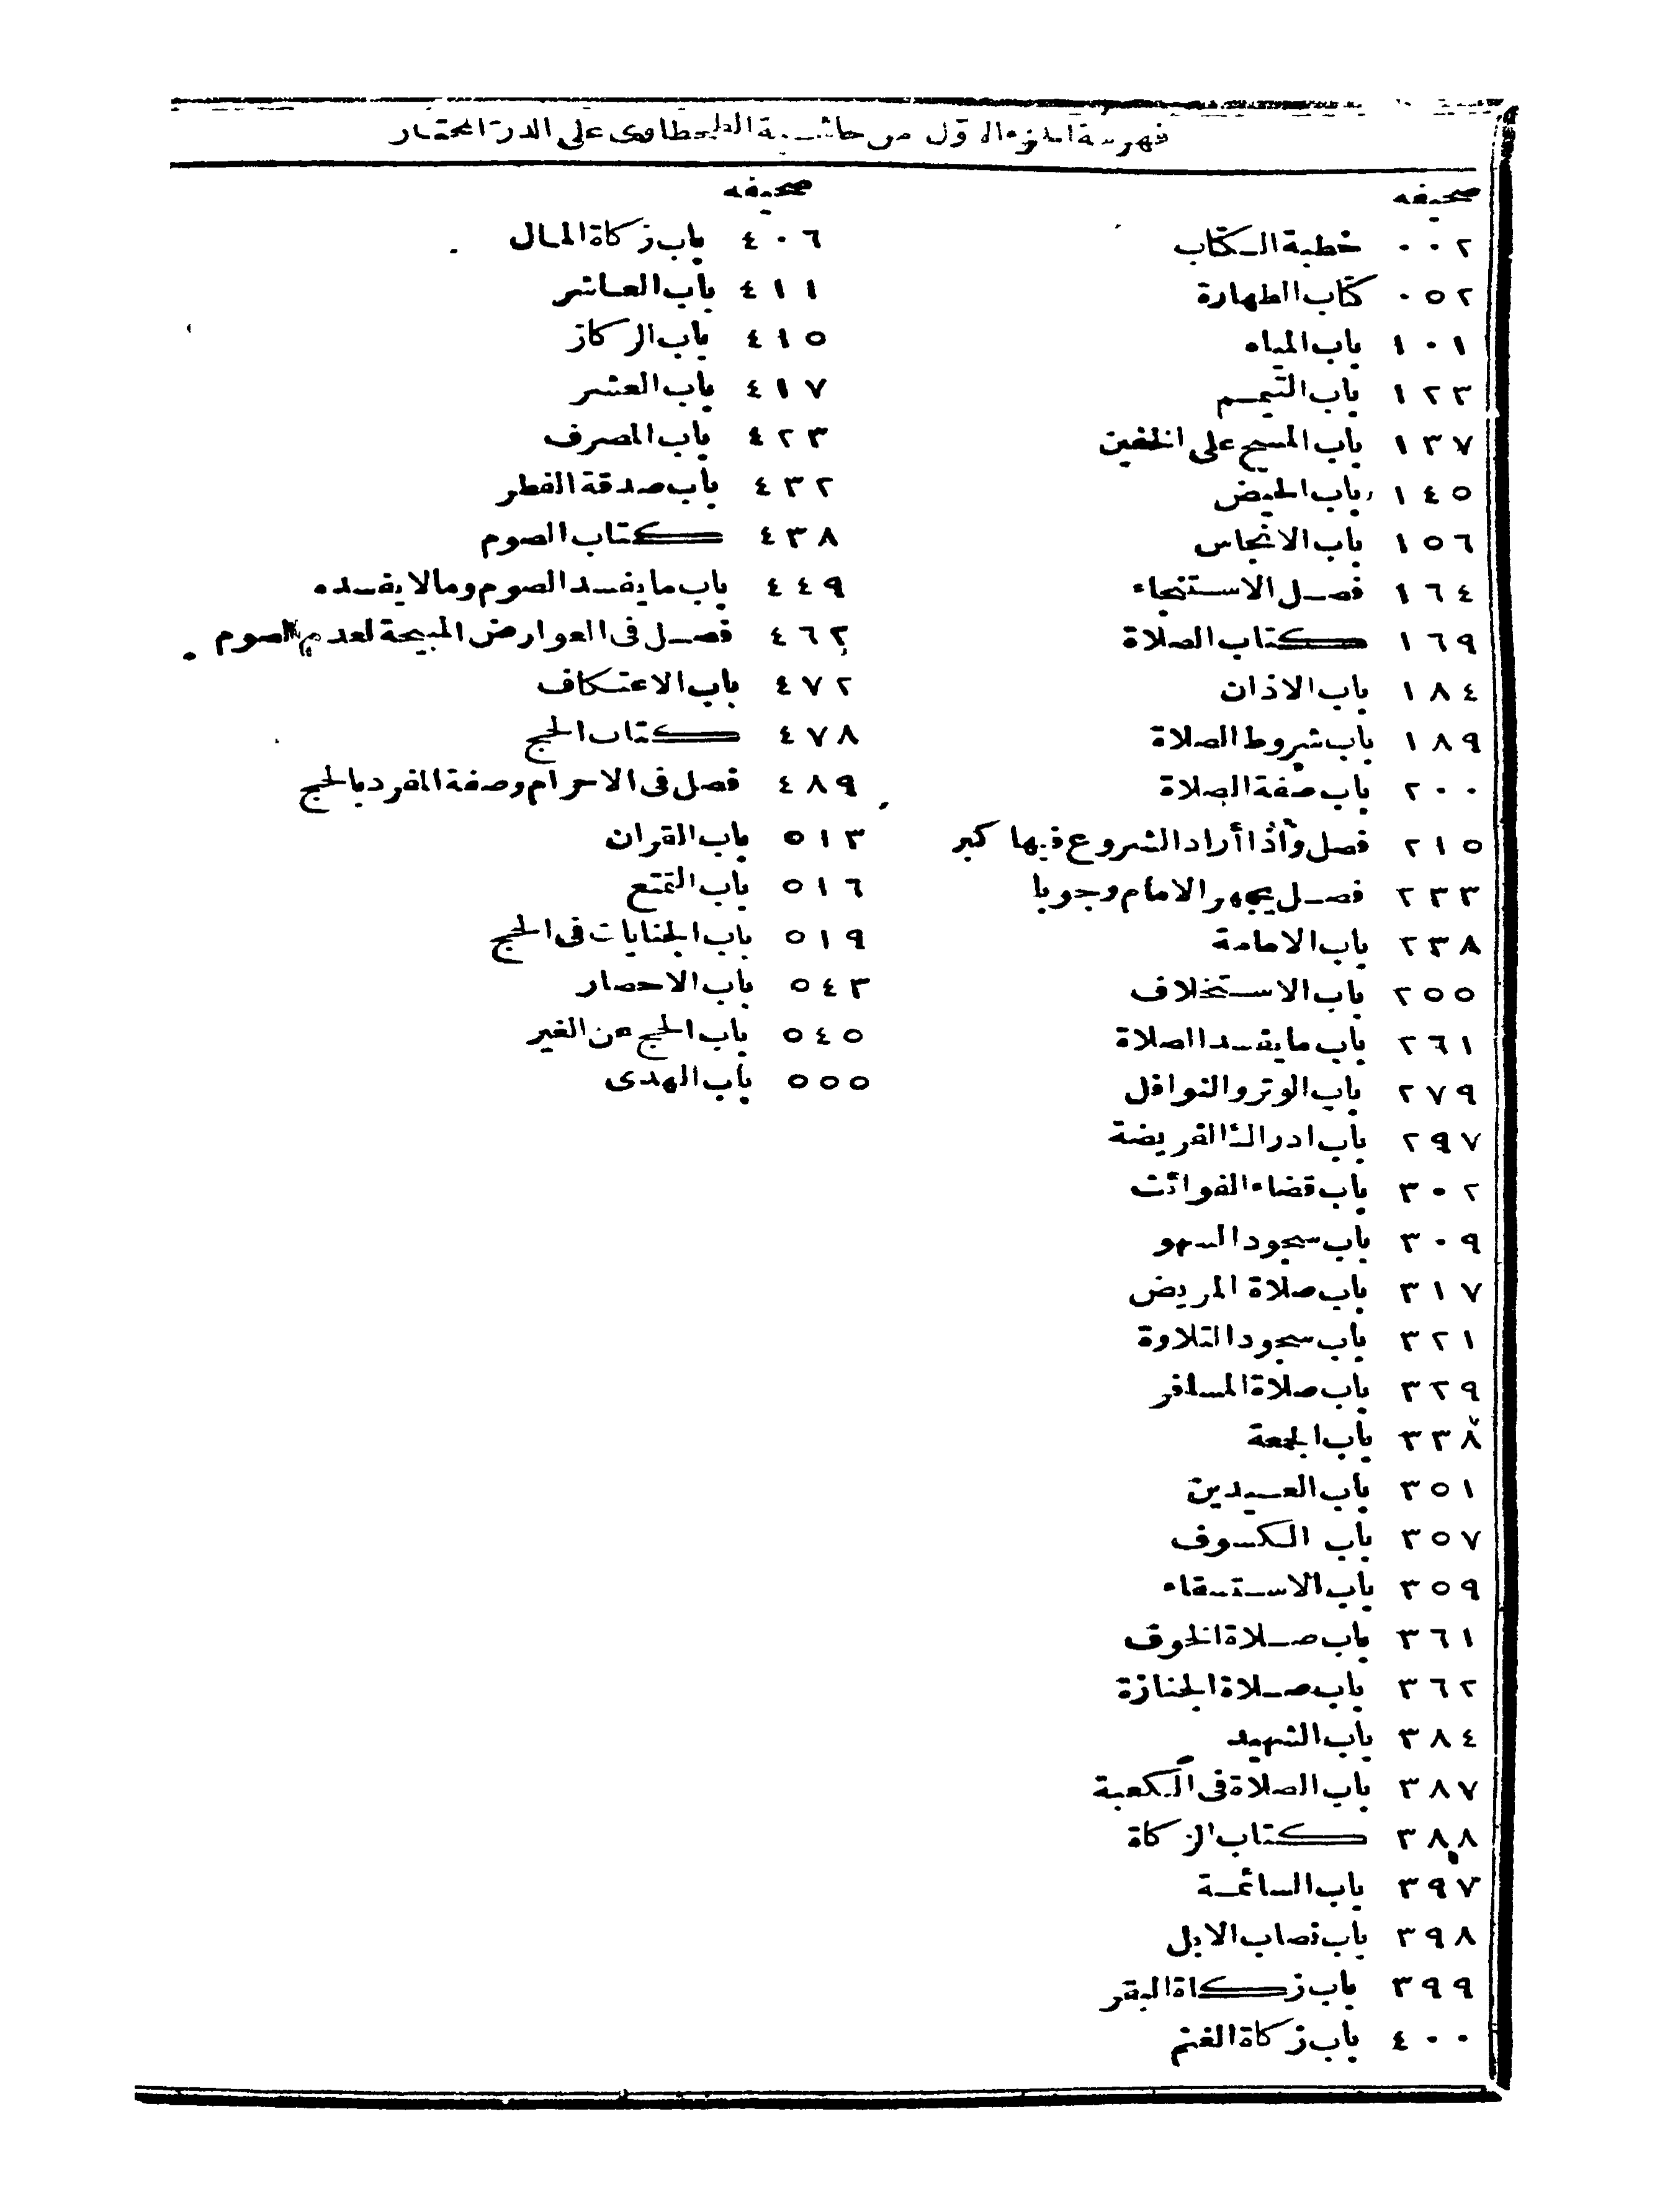 فهرسة الجزء الاول من حاشية الطحطاوى على الدر المختار
صحيفه
٠٠٢ خطبة الكتاب
٠٥٢ كتاب الطهارة
١٠١ باب المياه
١٢٣ باب التيمم
١٣٧ باب المسح على الخفين
١٤٥ باب الحيض
١٥٦ باب الانجاس
١٦٤ فصل الاستنجاء
١٦٩ كتاب الصلاة
١٨٤ باب الاذان
١٨٩ باب شروط الصلاة
٢٠٠ باب صفة الصلاة
٢١٥ فصل وأذا أراد الشروع فيها كبر
٢٣٣ فصل يجهر الامام وجوبا
٢٣٨ باب الامامة
٢٥٥ باب الاستخلاف
٢٦١ باب ما يفسد الصلاة
٢٧٩ باب الوتر والنوافل
٢٩٧ باب ادراك الفريضة
٣٠٢ باب قضاء الفوائت
٣٠٩ باب سجود السهو
٣١٧ باب صلاة المريض
٣٢١ باب سجود التلاوة
٣٢٩ باب صلاة المسافر
٣٣٨ باب الجمعة
٣٥١ باب العيدين
٣٥٧ باب الكسوف
٣٥٩ باب الاستسقاء
٣٦١ باب صلاة الخوف
٣٦٢ باب صلاة الجنازة
٣٨٤ باب الشهيد
٣٨٧ باب الصلاة فى الكعبة
٣٨٨ كتاب الزكاة
٣٩٧ باب السائمة
٣٩٨ باب نصاب الابل
٣٩٩ باب زكاة البقر
٤٠٠ باب زكاة الغنم
صحيفه
٤٠٦ باب زكاة المال
٤١١ باب العاشر
٤١٥ باب الركاز
٤١٧ باب العشر
٤٢٣ باب المصرف
٤٣٢ باب صدقة الفطر
٤٣٨ كتاب الصوم
٤٤٩ باب ما يفسد الصوم وما لا يفسده
٤٦٢ فصل فى العوارض المبيحة لعدم الصوم
٤٧٢ باب الاعتكاف
٤٧٨ كتاب الحج
٤٨٩ فصل فى الاحرام وصفة المفرد بالحج
٥١٣ باب القران
٥١٦ باب التمتع
٥١٩ باب الجنايات فى الحج
٥٤٣ باب الاحصار
٥٤٥ باب الحج عن الغير
٥٥٥ باب الهدى